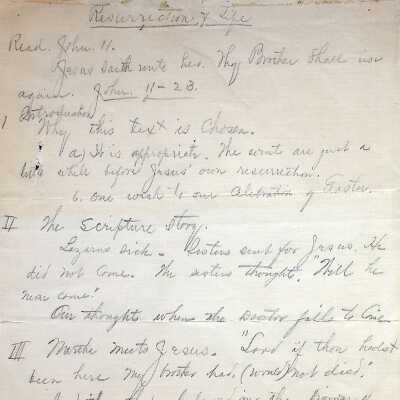 Resurrection & Life
Read. John. 11.
Jesus saith unto her. Thy Brother Shall rise
again. John. 11-23.
I Introduction
Why this text is Chosen.
a) It is appropriate. The events are just a
little while before Jesus' own resurrection.
b. One week to our Celebration of Easter.
II The Scripture Story.
Lazarus Sick. Sisters sent for Jesus. He
did not Come. The sisters thought. "Will he
near come."
Our thoughts when the Doctor fails to Come
III Martha meets Jesus. "Lord if thou hadst
been here My brother had (would) not died."